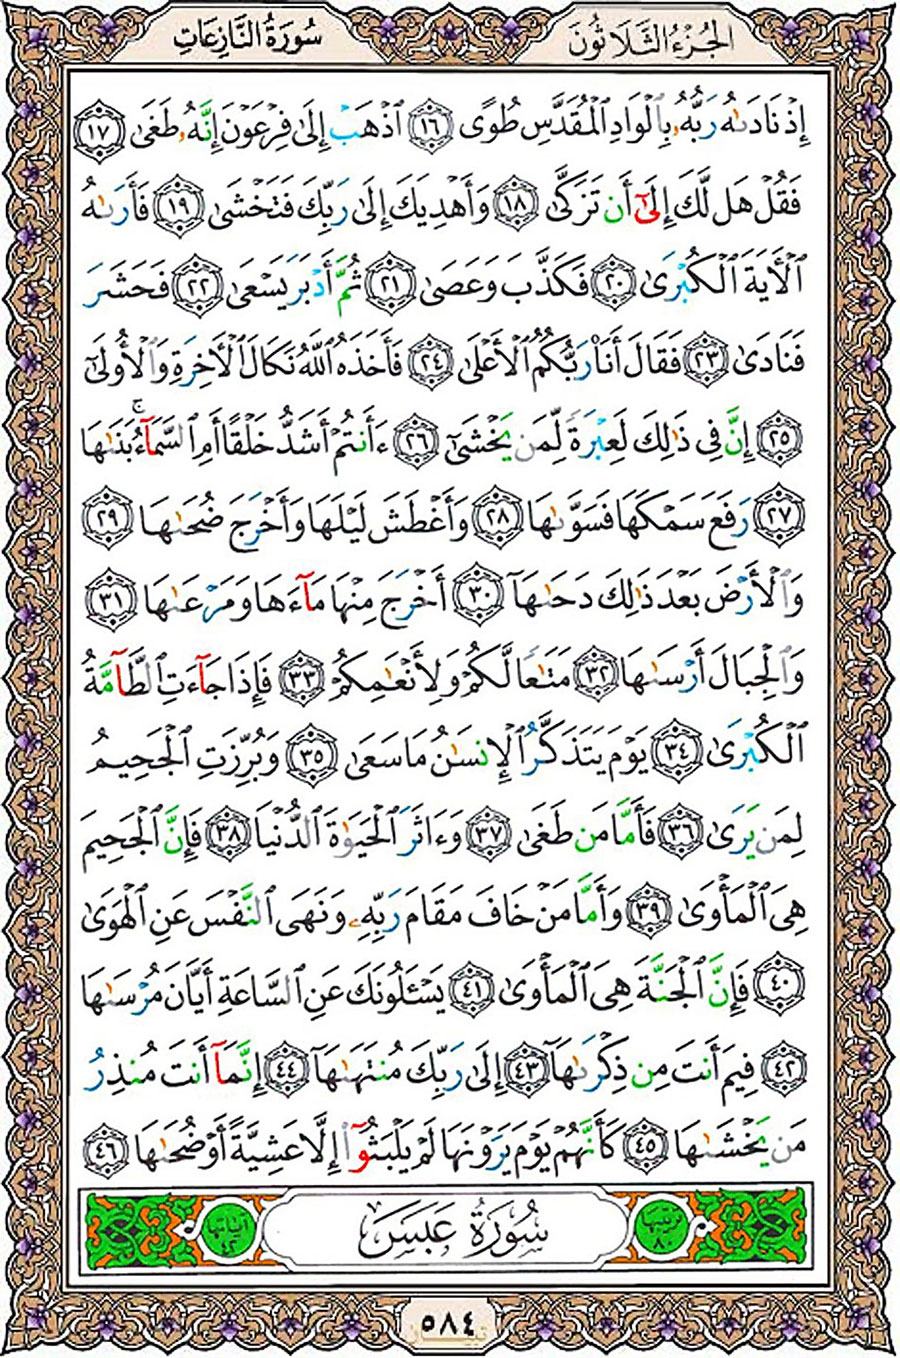 الجُزْءُ الثَّلَاثُونَ
سُورَةُ النَّازِعَاتِ
إِذْ نَادَىٰهُ رَبُّهُۥ بِٱلْوَادِ ٱلْمُقَدَّسِ طُوًى ١٦ ٱذْهَبْ إِلَىٰ فِرْعَوْنَ إِنَّهُۥ طَغَىٰ ١٧
فَقُلْ هَل لَّكَ إِلَىٰٓ أَن تَزَكَّىٰ ١٨ وَأَهْدِيَكَ إِلَىٰ رَبِّكَ فَتَخْشَىٰ ١٩ فَأَرَىٰهُ
ٱلْأٓيَةَ ٱلْكُبْرَىٰ ٢٠ فَكَذَّبَ وَعَصَىٰ ٢١ ثُمَّ أَدْبَرَ يَسْعَىٰ ٢٢ فَحَشَرَ
فَنَادَىٰ ٢٣ فَقَالَ أَنَا۠ رَبُّكُمُ ٱلْأَعْلَىٰ ٢٤ فَأَخَذَهُ ٱللَّهُ نَكَالَ ٱلْأٓخِرَةِ وَٱلْأُولَىٰٓ
٢٥ إِنَّ فِى ذَٰلِكَ لَعِبْرَةً لِّمَن يَخْشَىٰٓ ٢٦ ءَأَنتُمْ أَشَدُّ خَلْقًا أَمِ ٱلسَّمَآءُ ۚ بَنَىٰهَا
٢٧ رَفَعَ سَمْكَهَا فَسَوَّىٰهَا ٢٨ وَأَغْطَشَ لَيْلَهَا وَأَخْرَجَ ضُحَىٰهَا ٢٩
وَٱلْأَرْضَ بَعْدَ ذَٰلِكَ دَحَىٰهَآ ٣٠ أَخْرَجَ مِنْهَا مَآءَهَا وَمَرْعَىٰهَا ٣١
وَٱلْجِبَالَ أَرْسَىٰهَا ٣٢ مَتَٰعًا لَّكُمْ وَلِأَنْعَٰمِكُمْ ٣٣ فَإِذَا جَآءَتِ ٱلطَّآمَّةُ
ٱلْكُبْرَىٰ ٣٤ يَوْمَ يَتَذَكَّرُ ٱلْإِنسَٰنُ مَا سَعَىٰ ٣٥ وَبُرِّزَتِ ٱلْجَحِيمُ
لِمَن يَرَىٰ ٣٦ فَأَمَّا مَن طَغَىٰ ٣٧ وَءَاثَرَ ٱلْحَيَوٰةَ ٱلدُّنْيَا ٣٨ فَإِنَّ ٱلْجَحِيمَ
هِىَ ٱلْمَأْوَىٰ ٣٩ وَأَمَّا مَنْ خَافَ مَقَامَ رَبِّهِۦ وَنَهَى ٱلنَّفْسَ عَنِ ٱلْهَوَىٰ
٤٠ فَإِنَّ ٱلْجَنَّةَ هِىَ ٱلْمَأْوَىٰ ٤١ يَسْـَٔلُونَكَ عَنِ ٱلسَّاعَةِ أَيَّانَ مُرْسَىٰهَا
٤٢ فِيمَ أَنتَ مِن ذِكْرَىٰهَآ ٤٣ إِلَىٰ رَبِّكَ مُنتَهَىٰهَآ ٤٤ إِنَّمَآ أَنتَ مُنذِرُ
مَن يَخْشَىٰهَا ٤٥ كَأَنَّهُمْ يَوْمَ يَرَوْنَهَا لَمْ يَلْبَثُوٓا۟ إِلَّا عَشِيَّةً أَوْ ضُحَىٰهَا ٤٦
ترتيبها ٨٠
سُورَةُ عَبَسَ
آياتها ٤٢
٥٨٤
تبيان